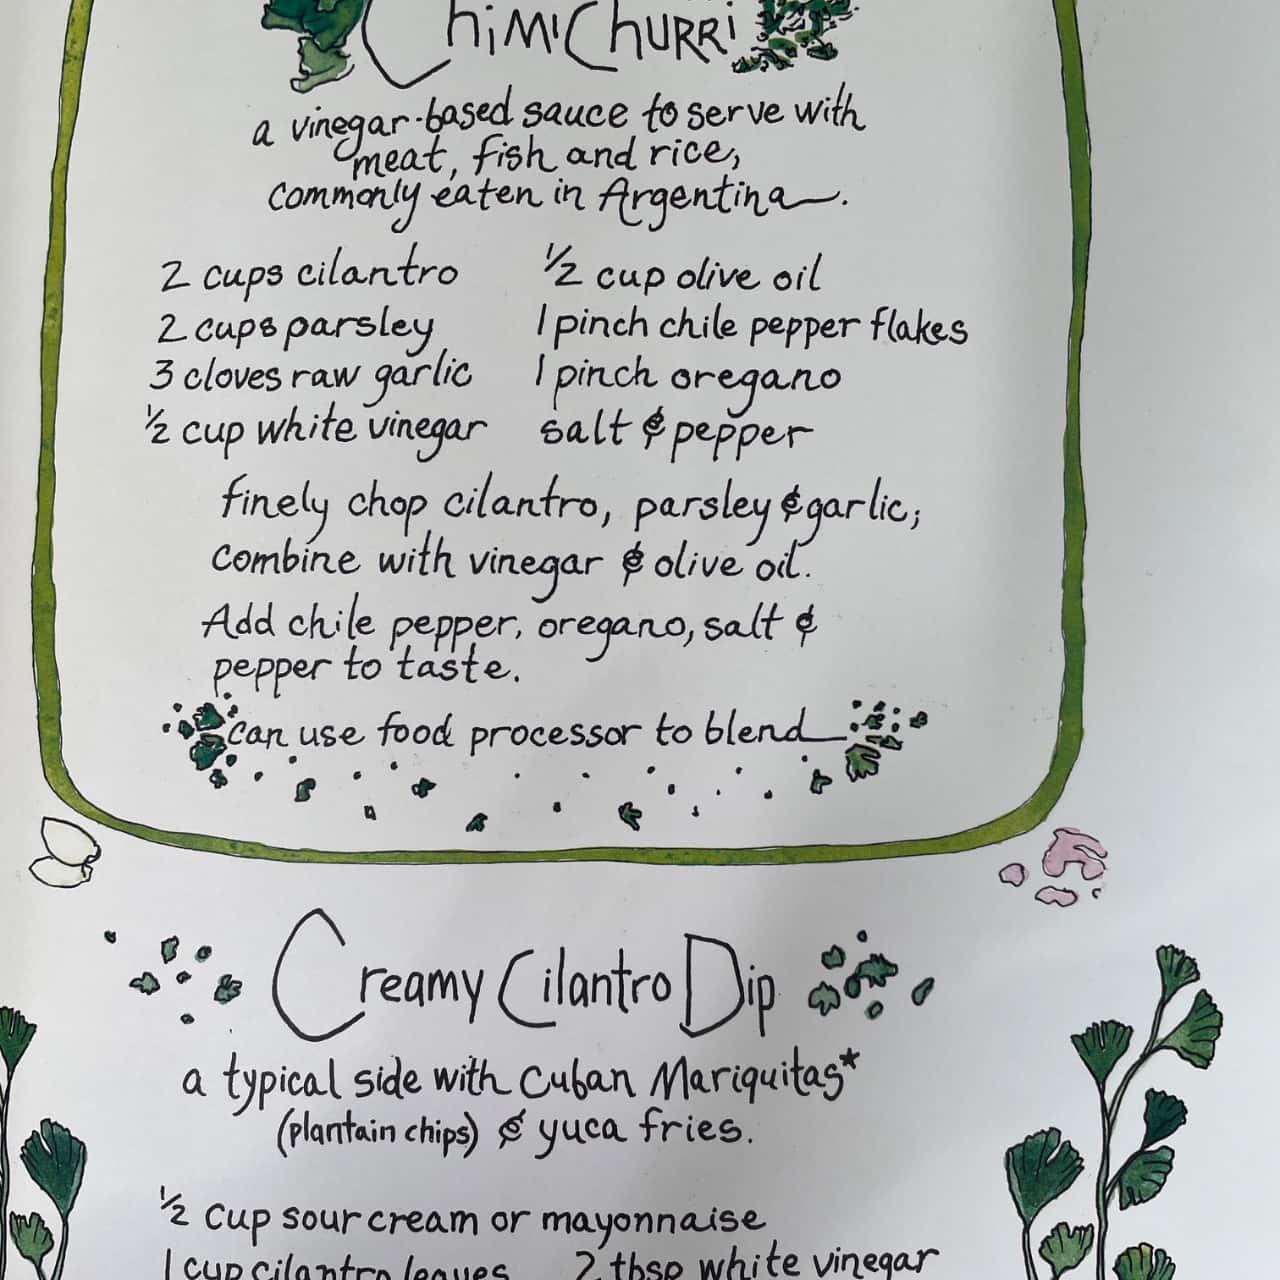 ChiMiChURRi
a vinegar-based sauce to serve with
meat, fish and rice,
commonly eaten in Argentina.
2 cups cilantro
2 cups parsley
3 cloves raw garlic
½ cup white vinegar
½ cup olive oil
1 pinch chile pepper flakes
1 pinch oregano
salt & pepper
finely chop cilantro, parsley & garlic;
combine with vinegar & olive oil.
Add chile pepper, oregano, salt &
pepper to taste.
can use food processor to blend
Creamy Cilantro Dip
a typical side with Cuban Mariquitas*
(plantain chips) & yuca fries.
½ cup sour cream or mayonnaise
1 cup cilantro leaves
2 tbsp white vinegar